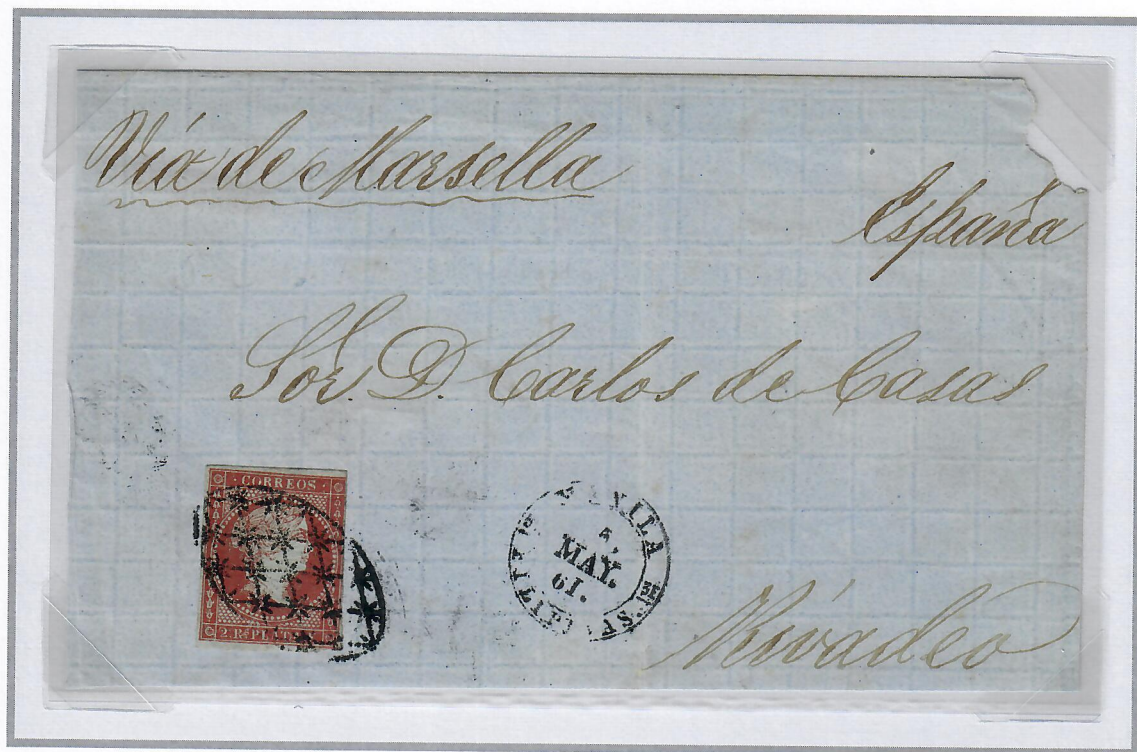 Via de Marsella
España
Sor. D. Carlos de Casas
CORREOS
2 Rs PLATA
MANILA
5.
MAY.
61.
Rivadeo